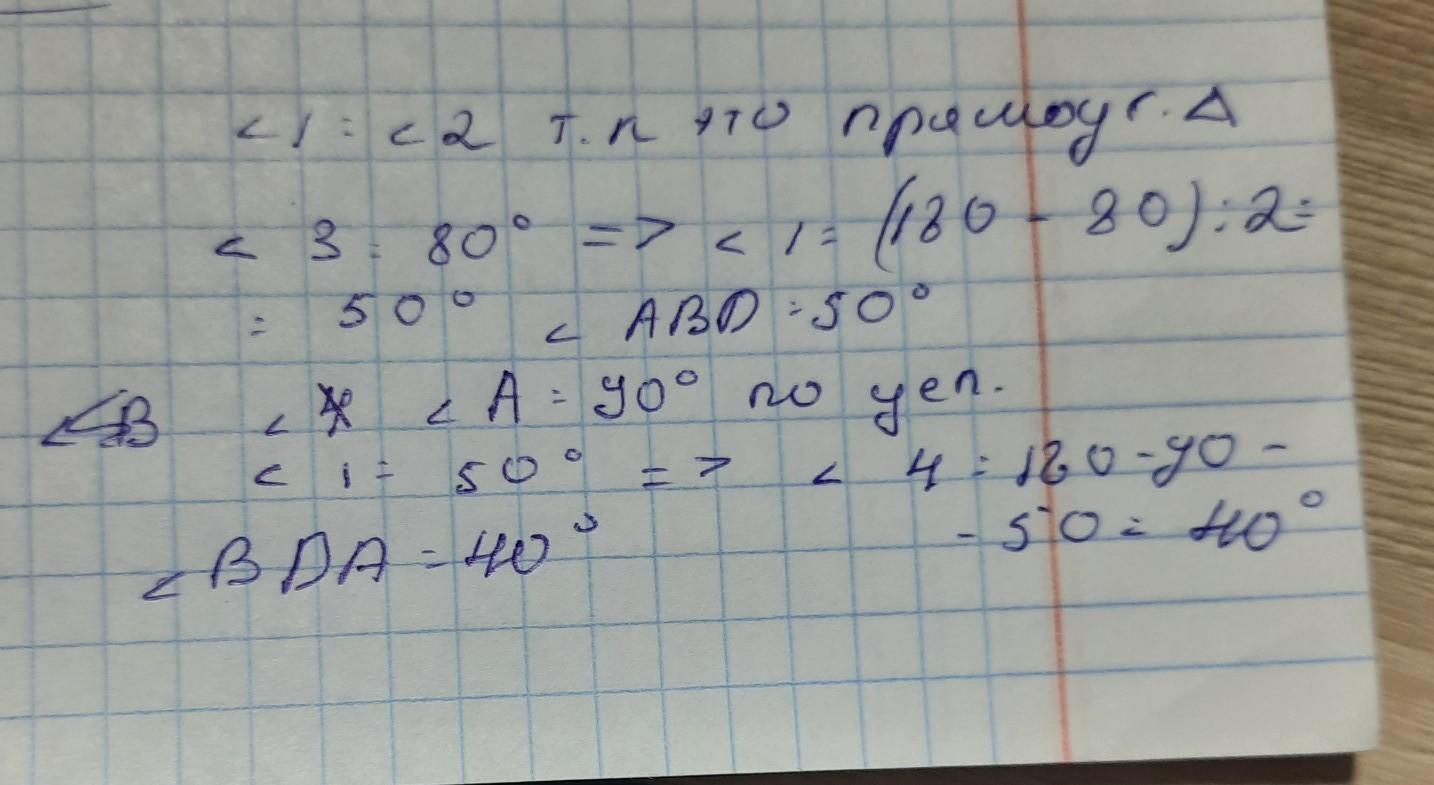 < 1 = < 2 т.к это прямоуг. Δ
< 3 = 80° => < 1 = (180 - 80) : 2 =
= 50° < ABD = 50°
< < A = 90° по усл.
< 1 = 50° => < 4 = 180 - 90 -
- 50 = 40°
< BDA = 40°